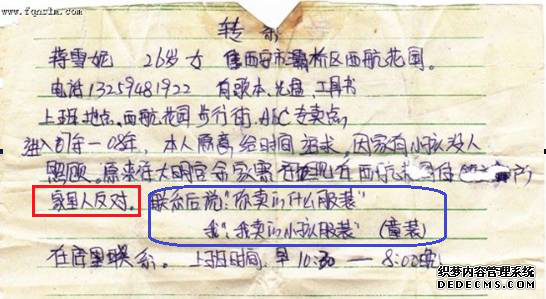 www.fqnrlm.com
转会
蒋雪妮 26岁 女 住西安市灞桥区西航花园。
电话13259481922 有歌本、光盘、工具书
上班地点、西航花园步行街、ABC专卖点,
进入 一08年,本人原高,给时间追求,因家有小孩没人
照顾。原来在大明宫
家里人反对。联系后说:"你卖的什么服装"
我:我卖的小孩服装"(童装)
在店里联系。上班时间,早10:30 — 8:00晚。
织梦内容管理系统
DEDECMS.COM